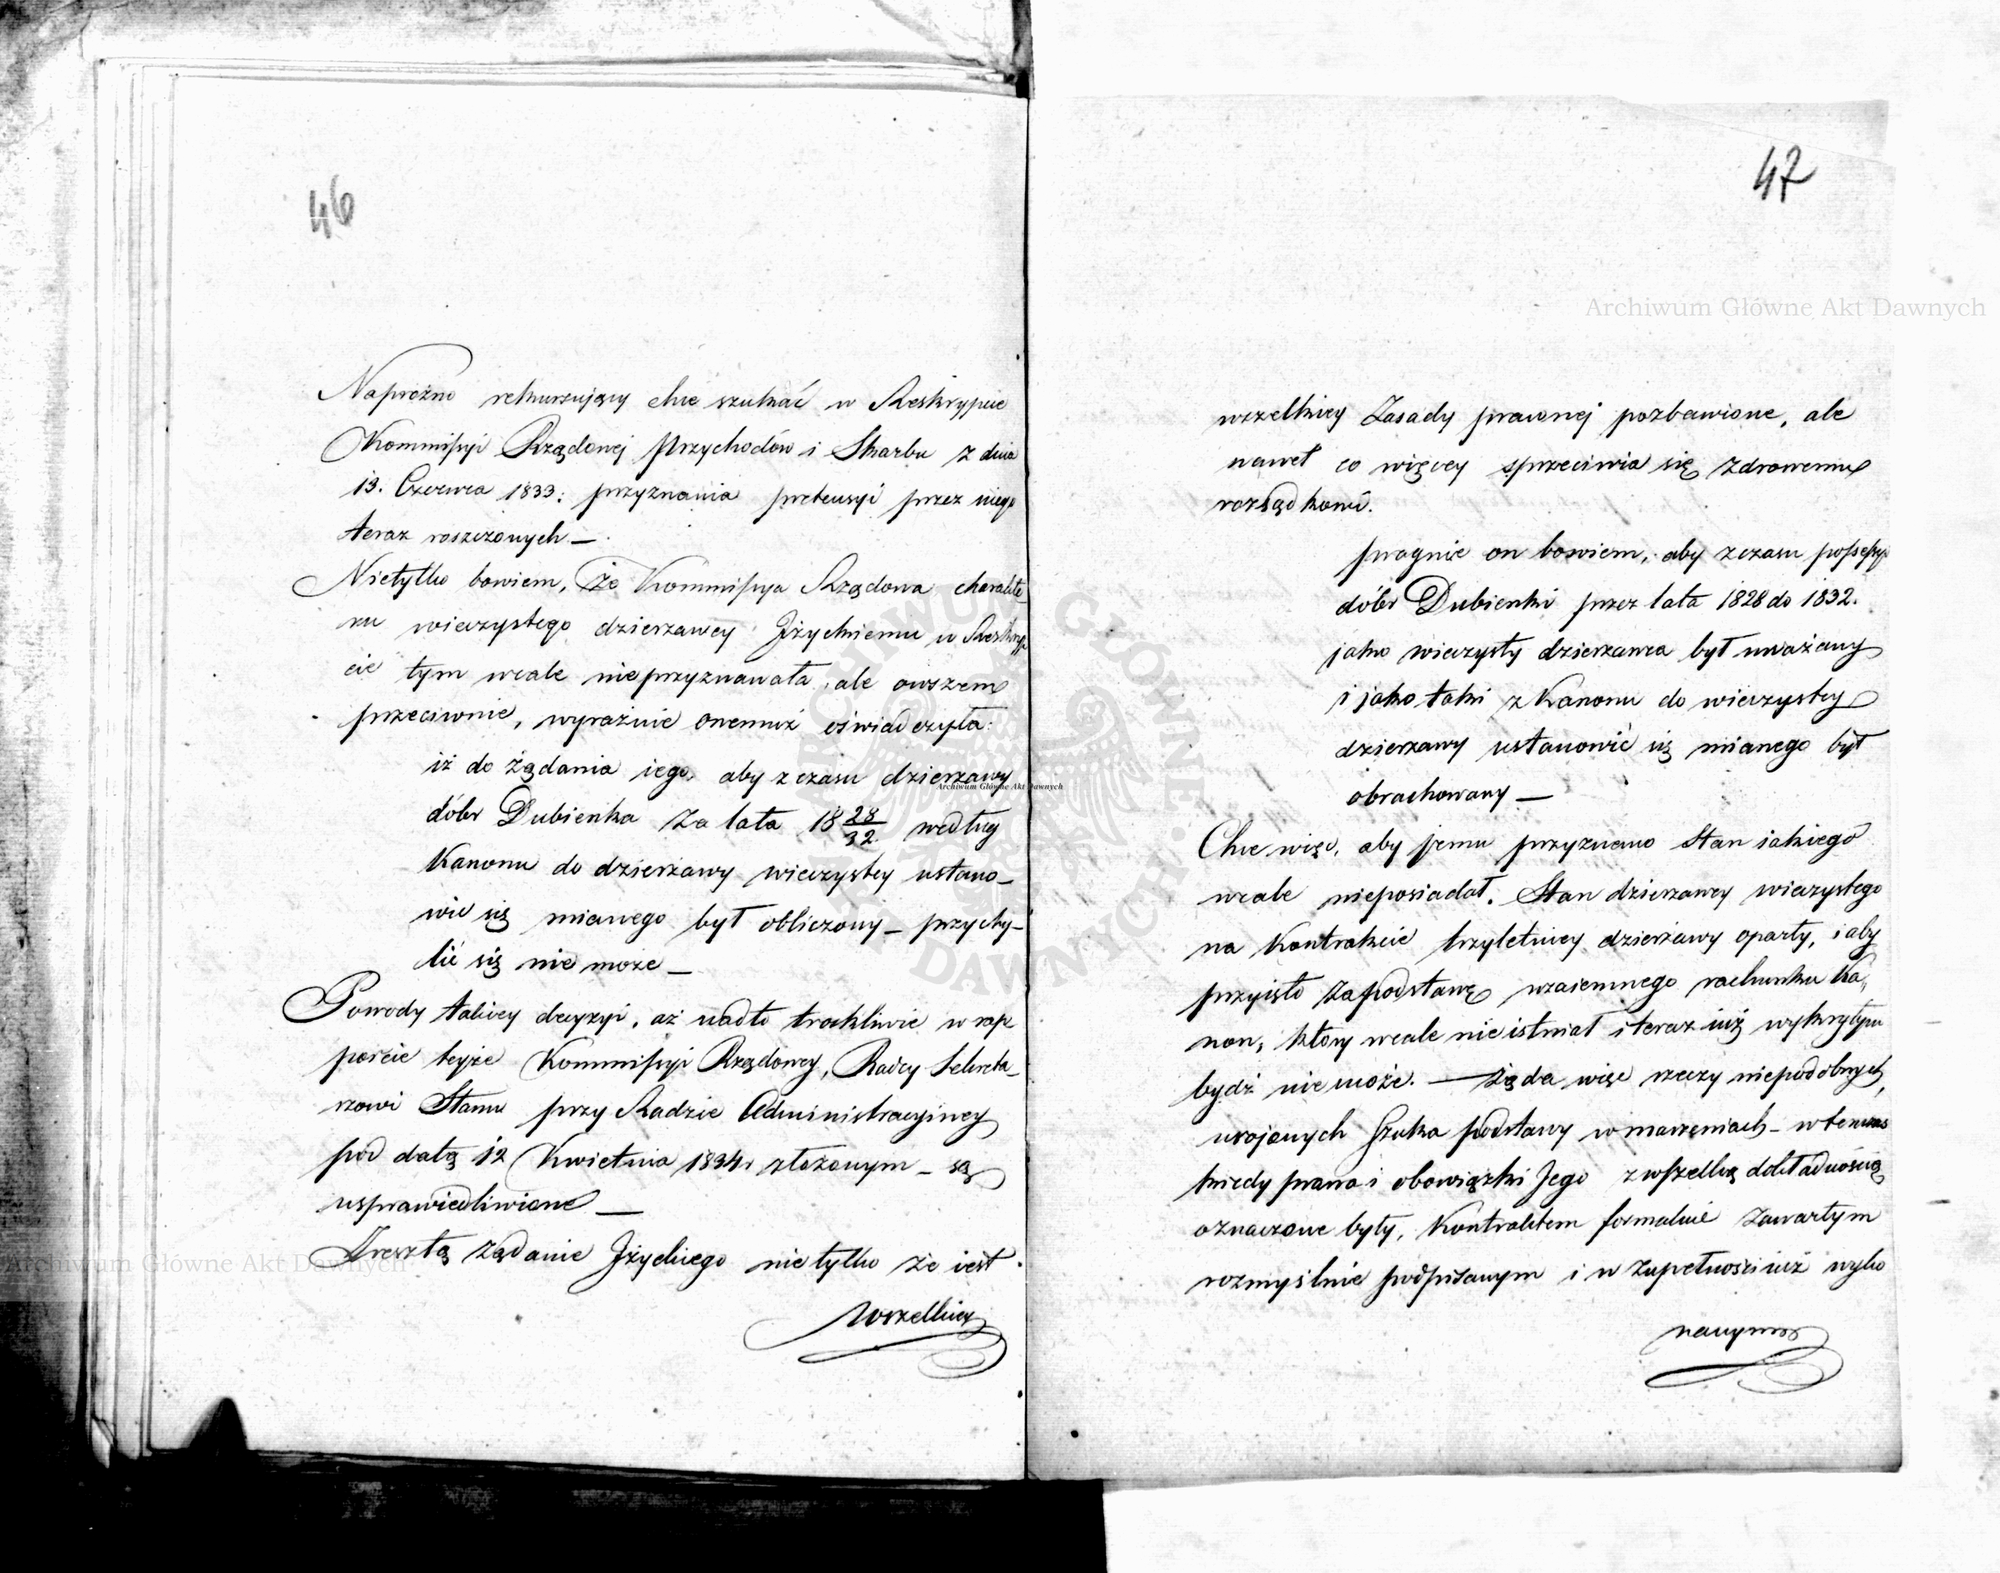 46
Napróżno rekurzujący chce szukać w Reskrypcie
Kommissyi Rządowej Przychodów i Skarbu z dnia
13. Czerwca 1833: przyznania pretensyi przez niego
teraz roszczonych —
Nietylko bowiem, że Kommissya Rządowa charakte
ru wieczystego dzierzawcy Jżyckiemu w Reskryp
cie tym wcale nieprzyznawała, ale owszem
przeciwnie, wyraźnie onemuż oświadczyła:
iż do żądania iego, aby z czasu dzierzawy
dóbr Dubienka za lata 18 28/32 według
Kanonu do dzierżawy wieczystey ustano-
wić się mianego był obliczony – przychy-
lić się nie może —
Powody takiey decyzyi, aż nadto troskliwie w rap
porcie teyże Kommissyi Rządowey, Radcy Sekreta-
rzowi Stanu przy Radzie Administracyiney
pod datą 12 Kwietnia 1834 r złożonym – są
usprawiedliwione —
Zresztą żądanie Jżyckiego nie tylko że iest
wszelkiey
47
wszelkiey Zasady prawnej pozbawione, ale
nawet co więcey sprzeciwia się zdrowemu
rozsądkowi.
pragnie on bowiem, aby z czasu possessyi
dóbr Dubienki przez lata 1828 do 1832.
jako wieczysty dzierzawca był uważany
i jako taki z Kanonu do wieczystey
dzierzawy ustanowić się mianego był
obrachowany —
Chce więc, aby jemu przyznano Stan iakiego
wcale nieposiadał. Stan dzierzawcy wieczystego
na Kontrakcie trzyletniey dzierżawy oparty, i aby
przyięto za podstawę wzaiemnego rachunku Ka,
non, który wcale nie istniał i teraz iuż wykrytym
bydź nie może. — Żąda więc rzeczy niepodobnych,
urojonych Szuka podstawy w marzeniach – wtenczas
kiedy prawa i obowiązki Jego z wszelką dokładnością
oznaczone były, Kontraktem formalnie zawartym
rozmyślnie podpisanym i w zupełności iuż wyko
nanym
Archiwum Główne Akt Dawnych
Archiwum Główne Akt Dawnych
Archiwum Główne Akt Dawnych
ARCHIWUM GŁÓWNE AKT DAWNYCH